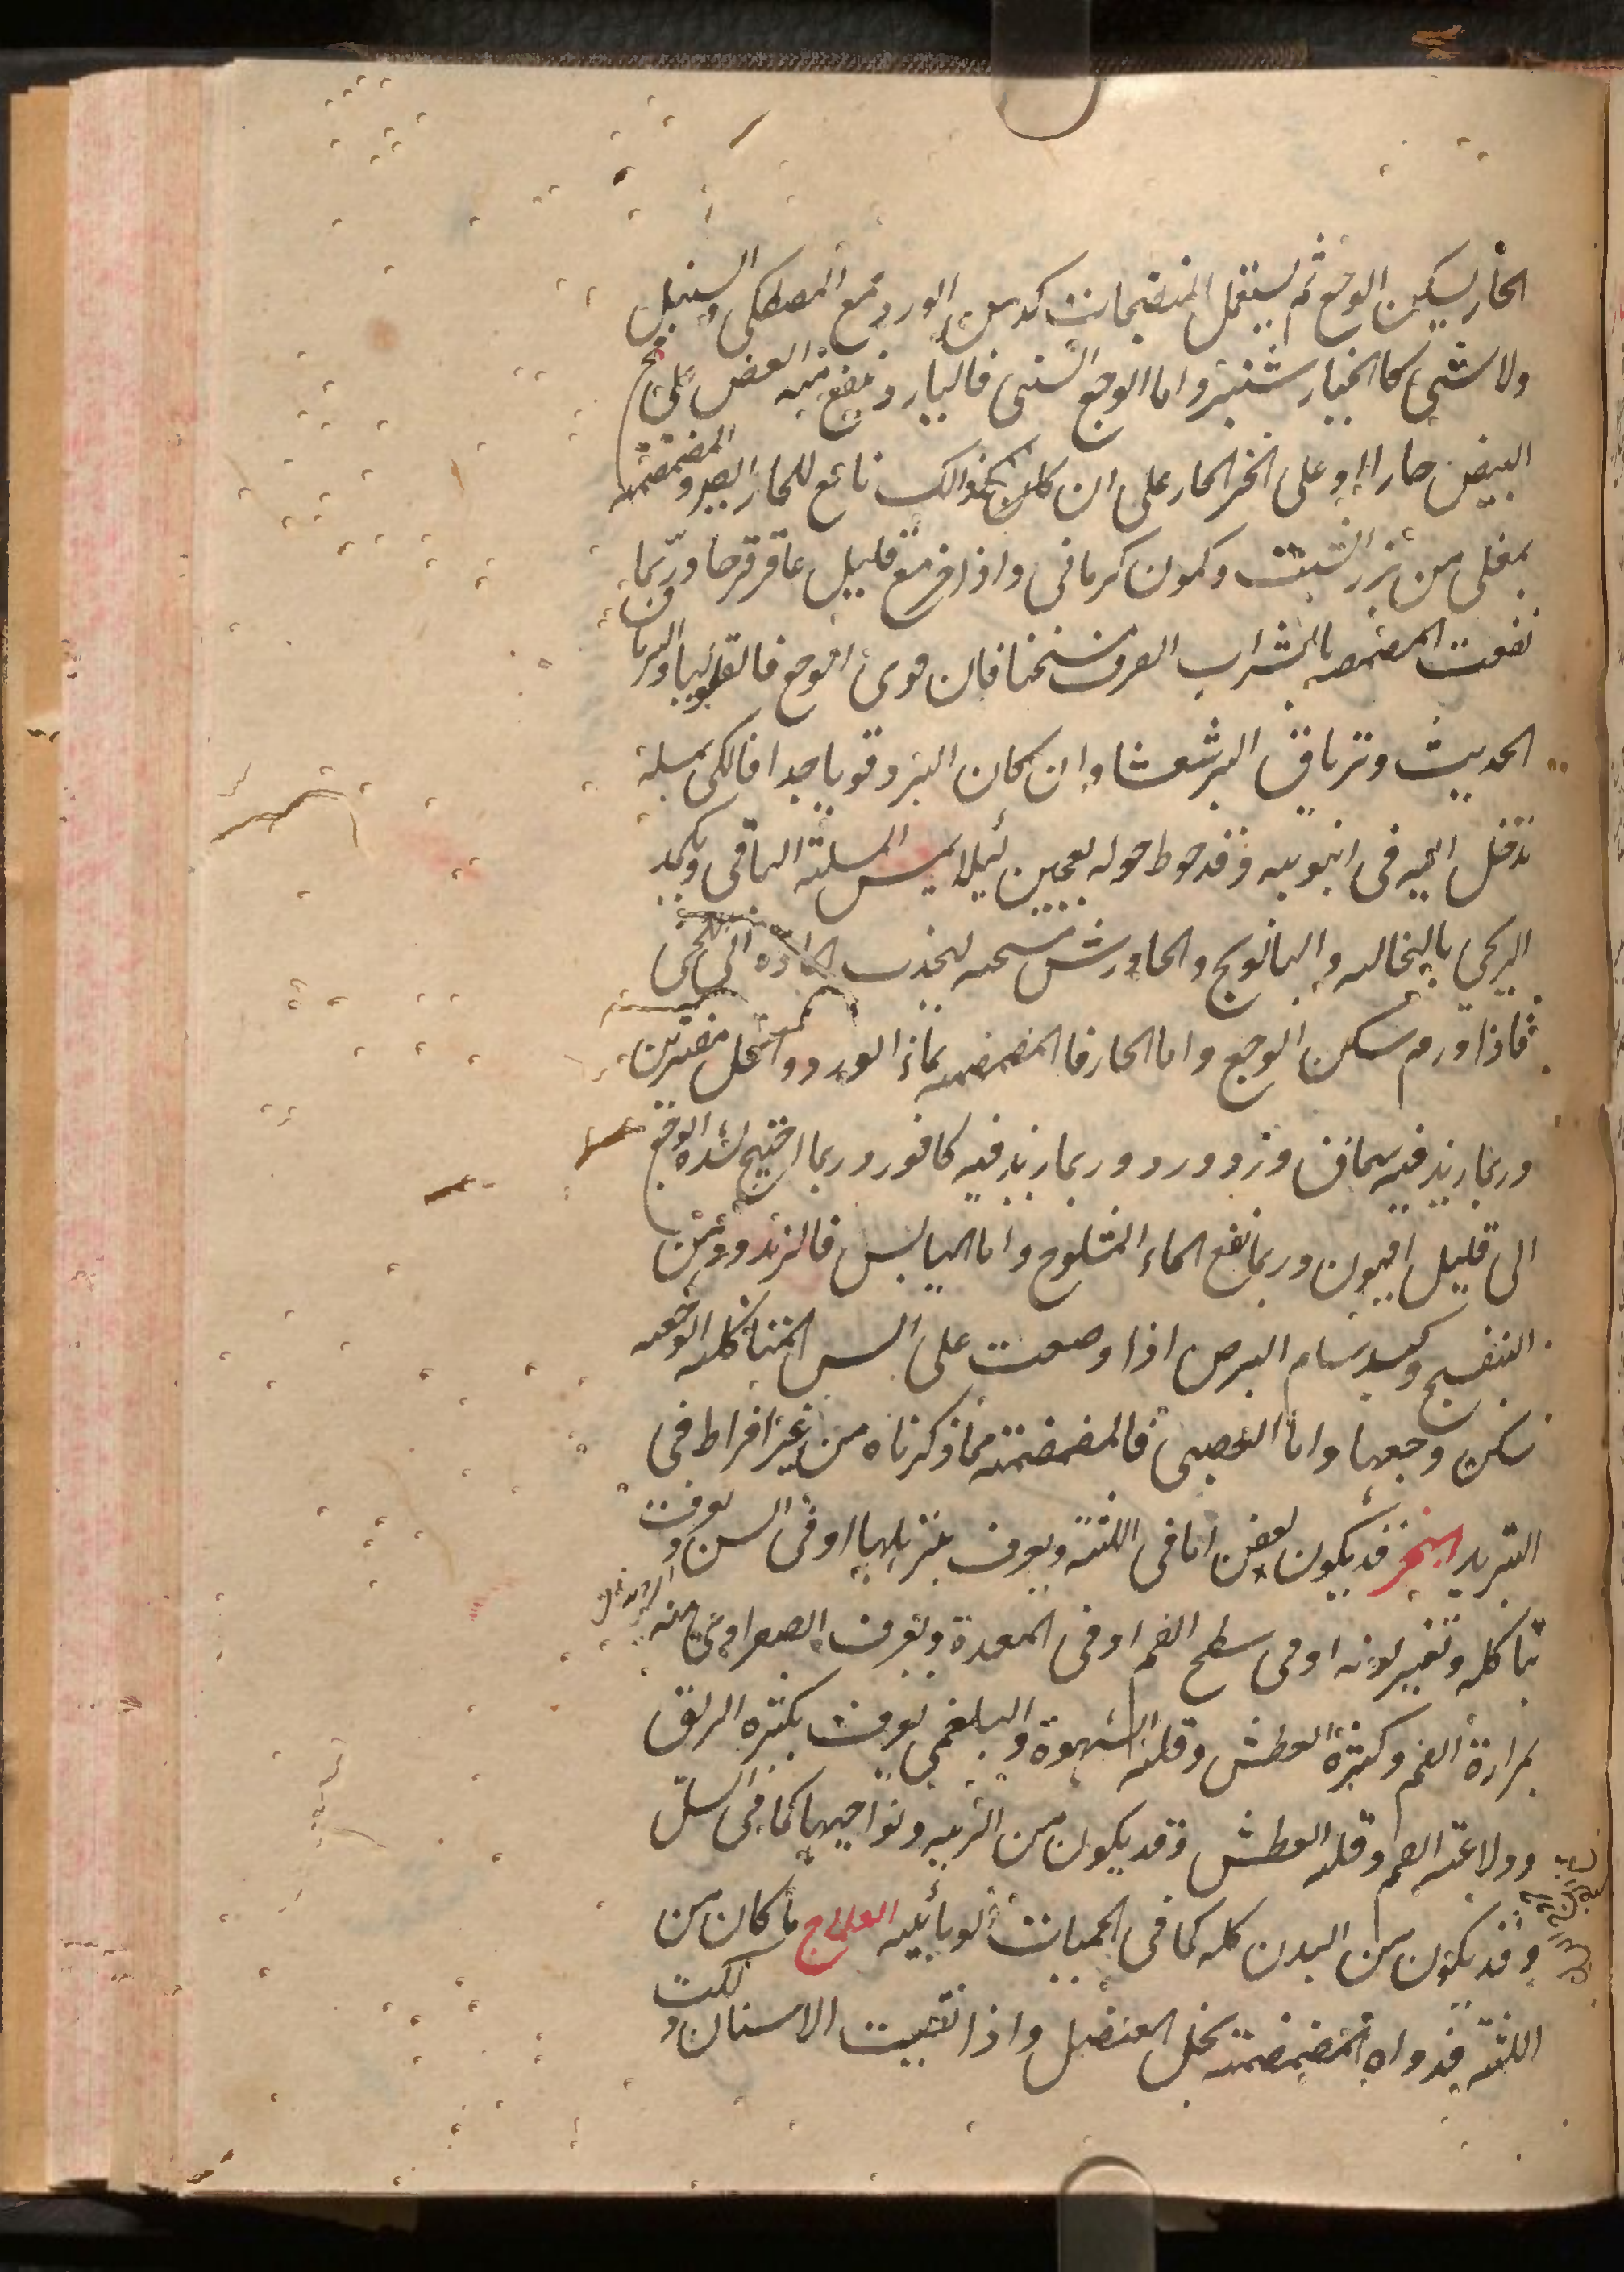 الحار ليسكن الوجع ثم ليستعمل المنضجات كدهن الورد مع المصطكى والسنبل
ولا شىء كالخيار شنبر واما الوجع السنى فالبارد ينفع منه العض على مح
البيض حارا او على الخبز الحار على ان كل ذالك نافع للحار ايضا والمضمضة
بمغلى من بزر الشبت وكمون كرمانى واذا مع قليل عاقرقرحا وربما
نفعت المضمضه بالشراب الصرف مسخنا فان قوى الوجع فالفلونيا والترياق
الحديث وترياق البرشعثا وان كان البرد قويا جدا فالكى بمسلة
تدخل اليه فى انبوبيه وقد حوط حوله بعجين لئلا يمس المسلة الباقى ويكمد
اللحى بالنخاله والبابونج والجاورش مسخنه ليجذب المادة الى اللحى
فاذا ورم سكن الوجع واما الحار فالمضمضه بماء الورد والخل مفترين
وربما زيد فيه سماق وزر ورد وربما زيد فيه كافور وربما احتيج لشدة الوجع
الى قليل افيون وربما نفع الماء المثلوج واما اليابس فالزبد ودهن
البنفسج وكبد سام ابرص اذا وضعت على السن المتاكله الوجعه
سكن وجعها واما العصبى فالمضمضة مما ذكرناه من غير افراط فى
التبريد البخر قد يكون لعفن اما فى اللثة ويعرف بترهلها او فى السن ويعرف
بتاكله وتغير لونه او فى سطح الفم او فى المعدة ويعرف الصفراوى منه
بمرارة الفم وكثرة العطش وقلة الشهوة والبلغمى يعرف بكثرة الريق
ودلاعة الفم وقلة العطش وقد يكون من الرئيه ونواحيها كما فى السل
وقد يكون من البدن كله كما فى الحميات الوبائيه العلاج ما كان من
اللثة فدواه المضمضة بخل العنصل واذا نقيت الاسنان